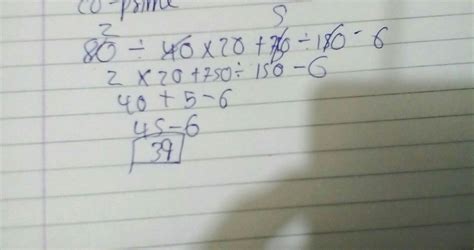 co-prime
2 5
80 ÷ 40 × 20 + 750 ÷ 150 - 6
2 × 20 + 750 ÷ 150 - 6
40 + 5 - 6
45 - 6
39